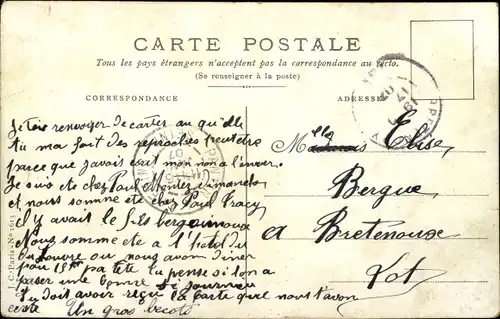 CARTE POSTALE
Tous les pays étrangers n'acceptent pas la correspondance au recto.
(Se renseigner à la poste)
CORRESPONDANCE
ADRESSE
Je renvoyer de carter au qu'elle
tu ma fait des reproches peutetre
parce que javais écrit mon non a l'enver.
Je suo ete chez Paul Montez Dimanche
et nous somme ete chez Paul Tracy
il y avait le fils
Nous somme ete a l'hotel du
du Louvre ou nous avon diner
pour pa ete tu pense si lon a
paser une bonne journeu
Tu doit avoir reçu la carte que nous t'avon
Un gros
Mlle Elise,
Bergue
a Bretenoux
Lot
J. C. Paris - No 1615